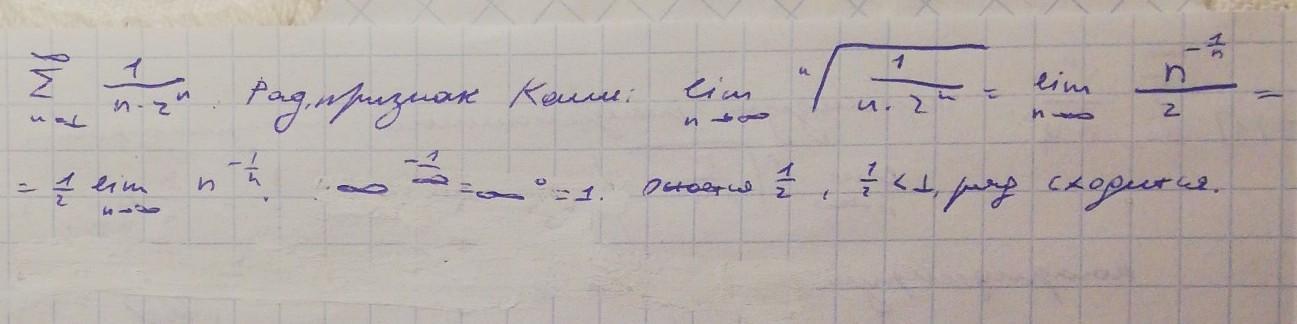 ∞ Σ n=1 1/(n·2ⁿ). Рад. признак Коши: lim n→∞ ⁿ√(1/(n·2ⁿ)) = lim n→∞ n^(-1/n)/2 =
= 1/2 lim n→∞ n^(-1/n). ∞^(-1/∞) = ∞⁰ = 1. Остаётся 1/2, 1/2 < 1, ряд сходится.